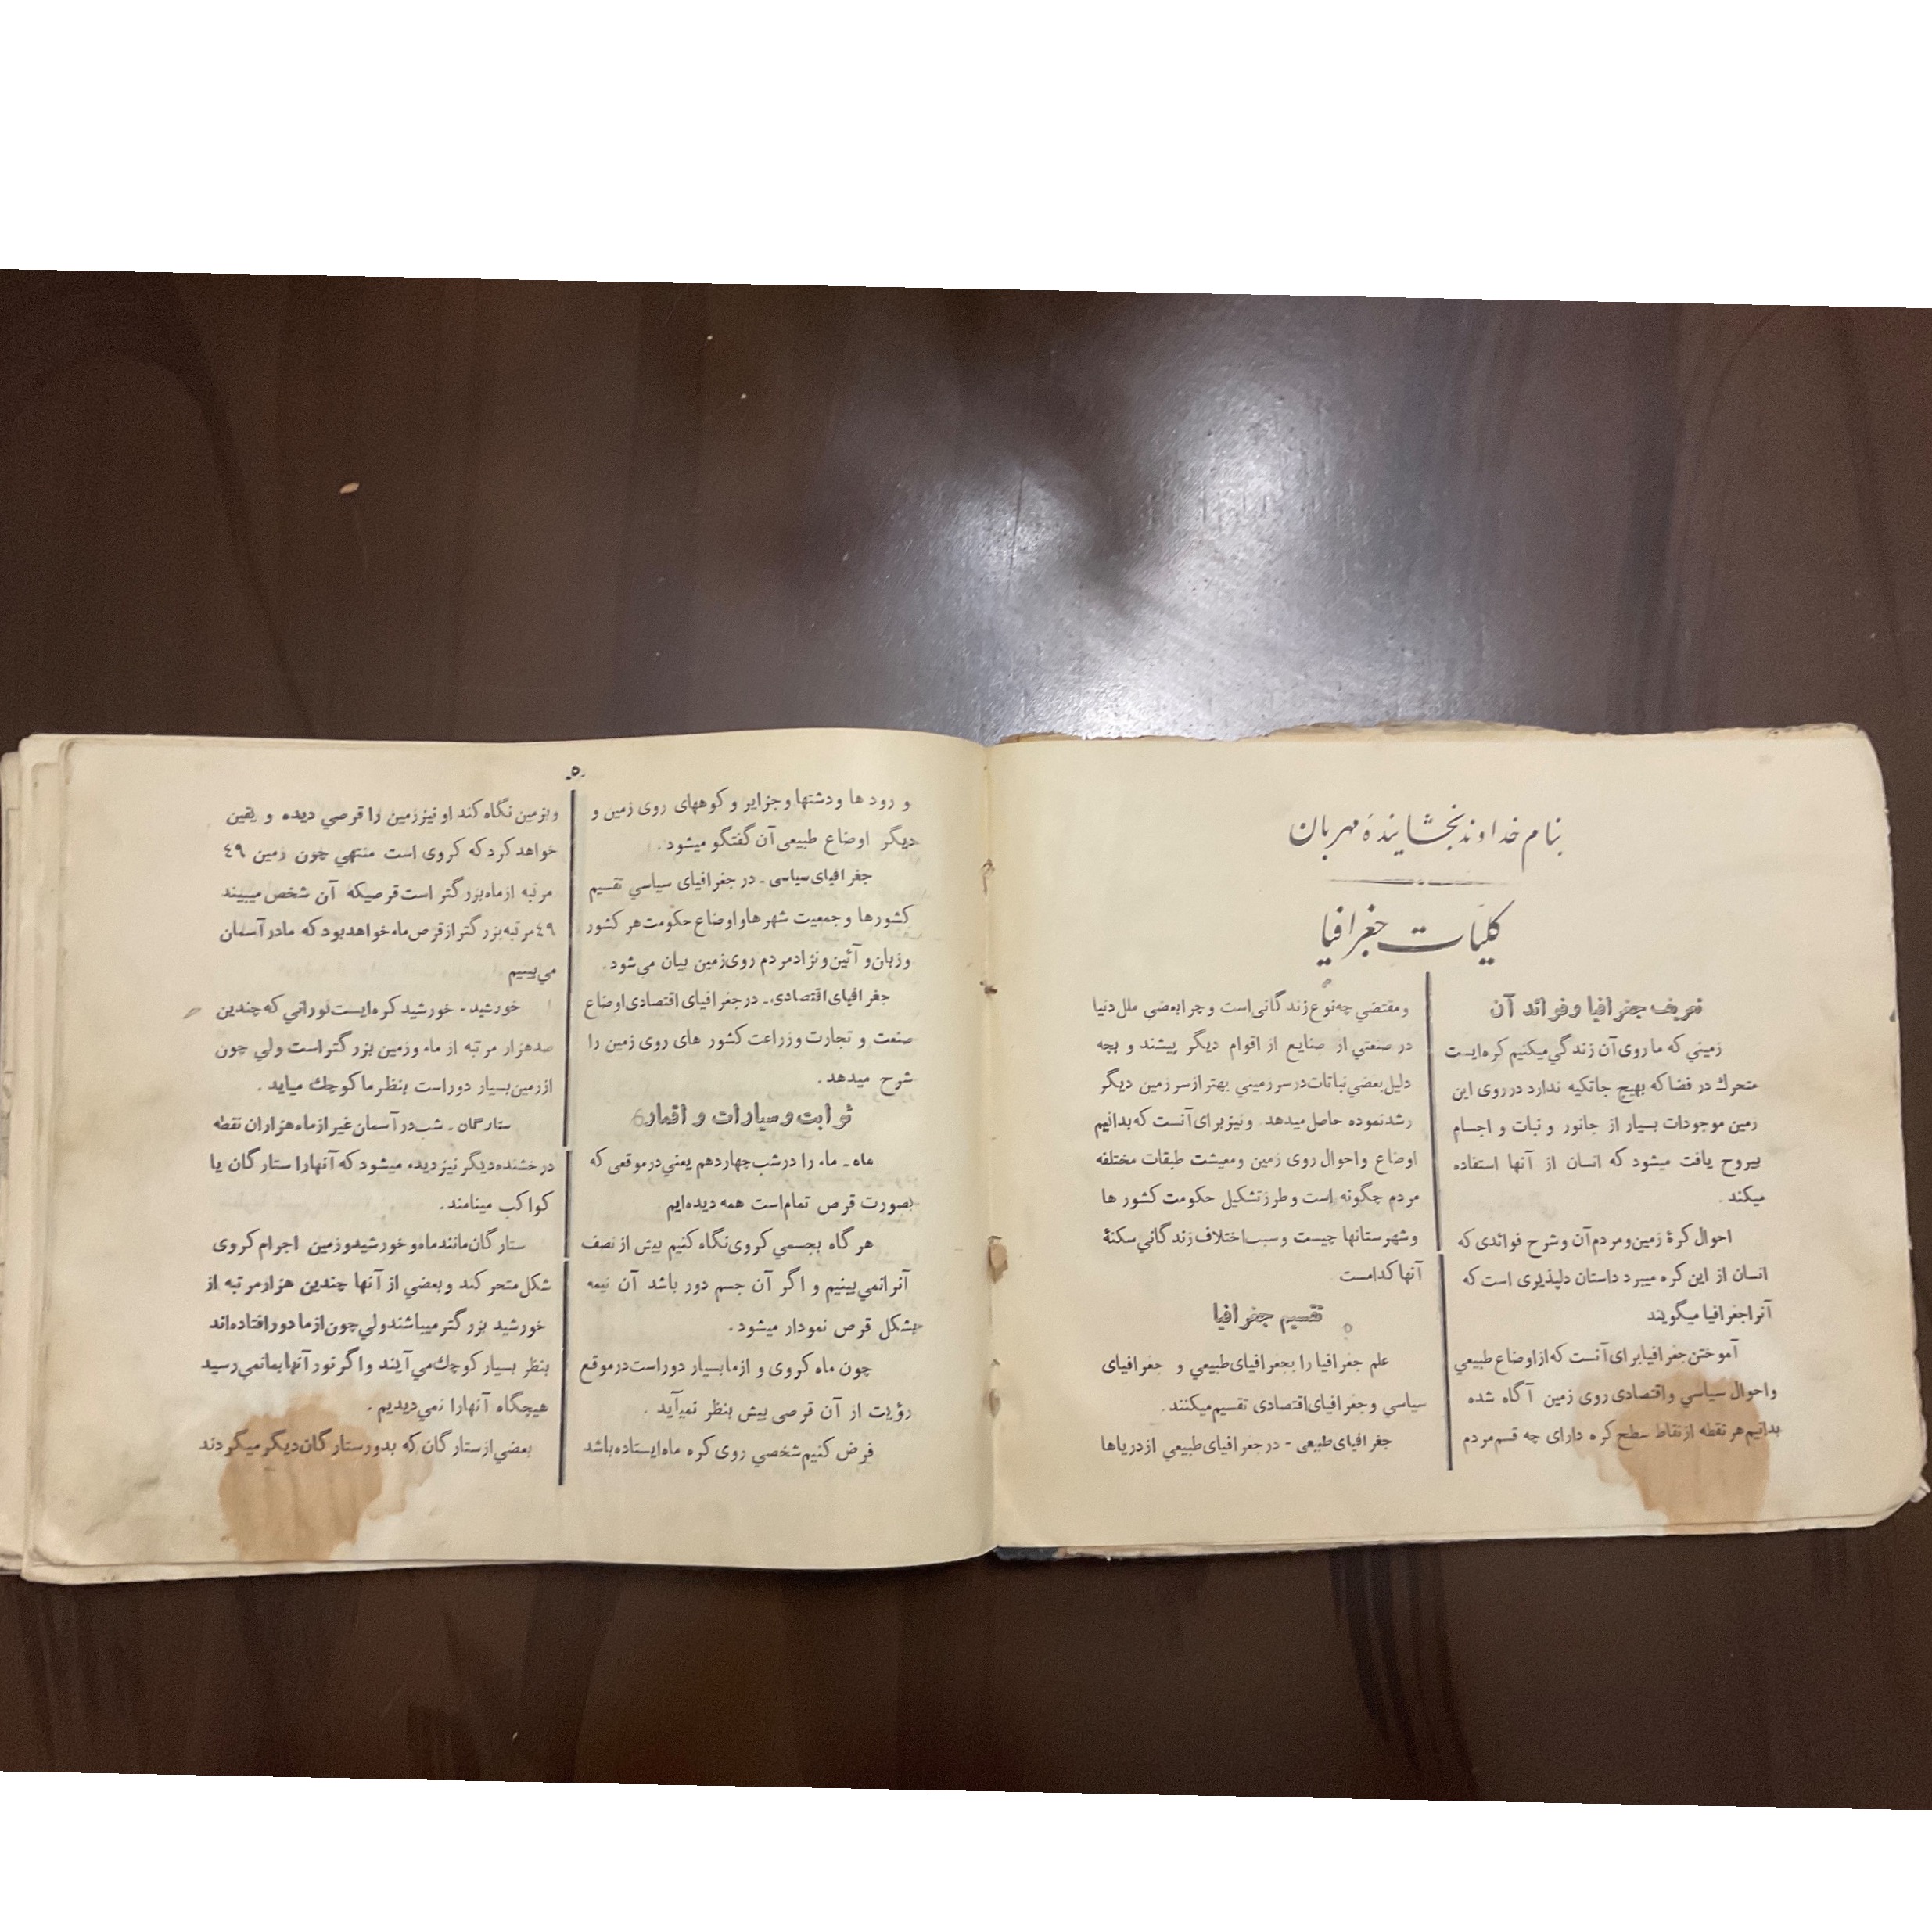 بنام خداوند بخشاینده مهربان
کلیات جغرافیا
تعریف جغرافیا و فوائد آن
زمیني که ما روی آن زندگي میکنیم کره ایست
متحرك در فضا که بهیچ جا تکیه ندارد در روی این
زمین موجودات بسیار از جانور و نبات و اجسام
بیروح یافت میشود که انسان از آنها استفاده
میکند .
احوال کرۀ زمین و مردم آن و شرح فوائدی که
انسان از این کره میبرد داستان دلپذیری است که
آنرا جغرافیا میگویند
آموختن جغرافیا برای آنست که از اوضاع طبیعي
و احوال سیاسي و اقتصادی روی زمین آگاه شده
بدانیم هر نقطه از نقاط سطح کره دارای چه قسم مردم
و مقتضي چه نوع زندگانی است و چرا بعضی ملل دنیا
در صنعتي از صنایع از اقوام دیگر پیشند و بچه
دلیل بعضي نباتات در سر زمیني بهتر از سر زمین دیگر
رشد نموده حاصل میدهد و نیز برای آنست که بدانیم
اوضاع و احوال روی زمین و معیشت طبقات مختلفه
مردم چگونه است و طرز تشکیل حکومت کشور ها
و شهرستانها چیست و سبب اختلاف زندگاني سکنۀ
آنها کدامست
تقسیم جغرافیا
علم جغرافیا را بجغرافیای طبیعي و جغرافیای
سیاسي و جغرافیای اقتصادی تقسیم میکنند .
جغرافیای طبیعی - در جغرافیای طبیعي از دریاها
-۵-
و رود ها و دشتها و جزایر و کوههای روی زمین و
دیگر اوضاع طبیعی آن گفتگو میشود .
جغرافیای سیاسی - در جغرافیای سیاسي تقسیم
کشورها و جمعیت شهر ها و اوضاع حکومت هر کشور
و زبان و آئین و نژاد مردم روی زمین بیان می شود .
جغرافیای اقتصادی - در جغرافیای اقتصادی اوضاع
صنعت و تجارت و زراعت کشور های روی زمین را
شرح میدهد .
ثوابت و سیارات و اقمار
ماه - ماه را در شب چهاردهم یعني در موقعی که
بصورت قرص تمام است همه دیده ایم
هر گاه بجسمي کروی نگاه کنیم بیش از نصف
آنرا نمي بینیم و اگر آن جسم دور باشد آن نیمه
بشکل قرص نمودار میشود .
چون ماه کروی و از ما بسیار دور است در موقع
رؤیت از آن قرصی بیش بنظر نمیآید .
فرض کنیم شخصي روی کره ماه ایستاده باشد
و بزمین نگاه کند او نیز زمین را قرصي دیده و یقین
خواهد کرد که کروی است منتهي چون زمین ٤٩
مرتبه از ماه بزرگتر است قرصیکه آن شخص میبیند
٤٩ مرتبه بزرگتر از قرص ماه خواهد بود که ما در آسمان
مي بینیم
خورشید - خورشید کره ایست نوراني که چندین
صد هزار مرتبه از ماه و زمین بزرگتر است ولي چون
از زمین بسیار دور است بنظر ما کوچك میاید .
ستارگان - شب در آسمان غیر از ماه هزاران نقطه
درخشنده دیگر نیز دیده میشود که آنها را ستارگان یا
کواکب مینامند .
ستارگان مانند ماه و خورشید و زمین اجرام کروی
شکل متحرکند و بعضي از آنها چندین هزار مرتبه از
خورشید بزرگتر میباشند ولي چون از ما دور افتاده اند
بنظر بسیار کوچك مي آیند و اگر نور آنها بما نمي رسید
هیچگاه آنها را نمي دیدیم .
بعضي از ستارگان که بدور ستارگان دیگر میگردند